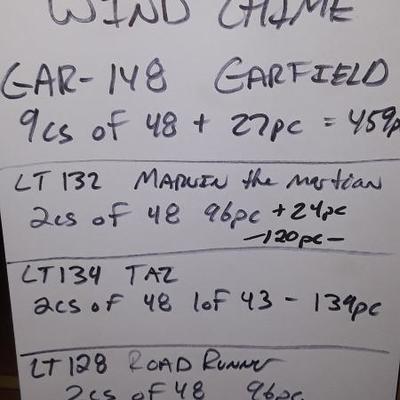 WIND CHIME
GAR-148 GARFIELD
9cs of 48 + 27pc = 459p
LT 132 MARVIN the martian
2cs of 48 96pc + 24pc
-120pc-
LT134 TAZ
2cs of 48 1of 43 - 139pc
LT 128 ROAD RUNNER
2cs of 48 96pc